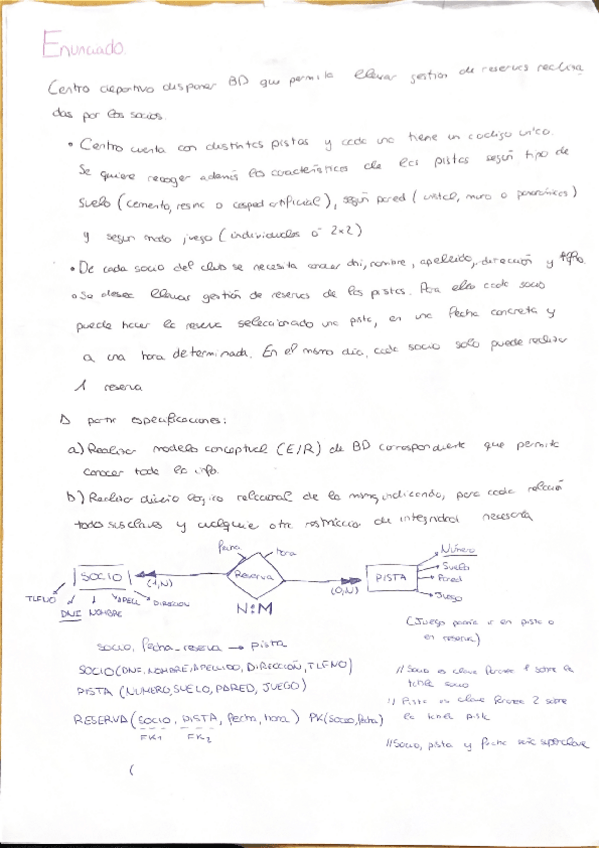 Enunciado.
Centro deportivo disponer BD que permita llevar gestión de reservas realiza
das por los socios.
• Centro cuenta con distintas pistas y cada una tiene un codigo unico.
Se quiere recoger además las características de las pistas según tipo de
suelo (cemento, resina o cesped artificial), según pared (cristal, muro o panorámicos)
y segun modo juego (individuales o 2x2)
• De cada socio del club se necesita conocer dni, nombre, apellido, dirección y tlfo.
• Se desea llevar gestión de reservas de las pistas. Para ello cada socio
puede hacer la reserva seleccionado una pista, en una fecha concreta y
a una hora determinada. En el mismo dia, cada socio solo puede realizar
1 reserva
A partir especificaciones:
a) Realizar modelo conceptual (E/R) de BD correspondiente que permita
conocer toda la info.
b) Realizar diseño lógico relacional de la misma indicando, para cada relación
todo sus claves y cualquier otra restricción de integridad necesaria
fecha hora
SOCIO (1,N) Reserva (0,N) PISTA
Número
Suelo
Pared
Juego
TLFNO DNI NOMBRE APELL DIRECCION
N:M
(Juego podría ir en pista o
en reserva)
socio, fecha_reserva → pista
SOCIO(DNI, NOMBRE, APELLIDO, DIRECCIÓN, TLFNO)
// Socio es clave foranea 1 sobre la
tabla socio
PISTA (NUMERO, SUELO, PARED, JUEGO)
// Pista es clave foranea 2 sobre
la tabla pista
RESERVA (SOCIO, PISTA, fecha, hora) PK(Socio, fecha)
FK1 FK2
// Socio, pista y fecha sería superclave
(